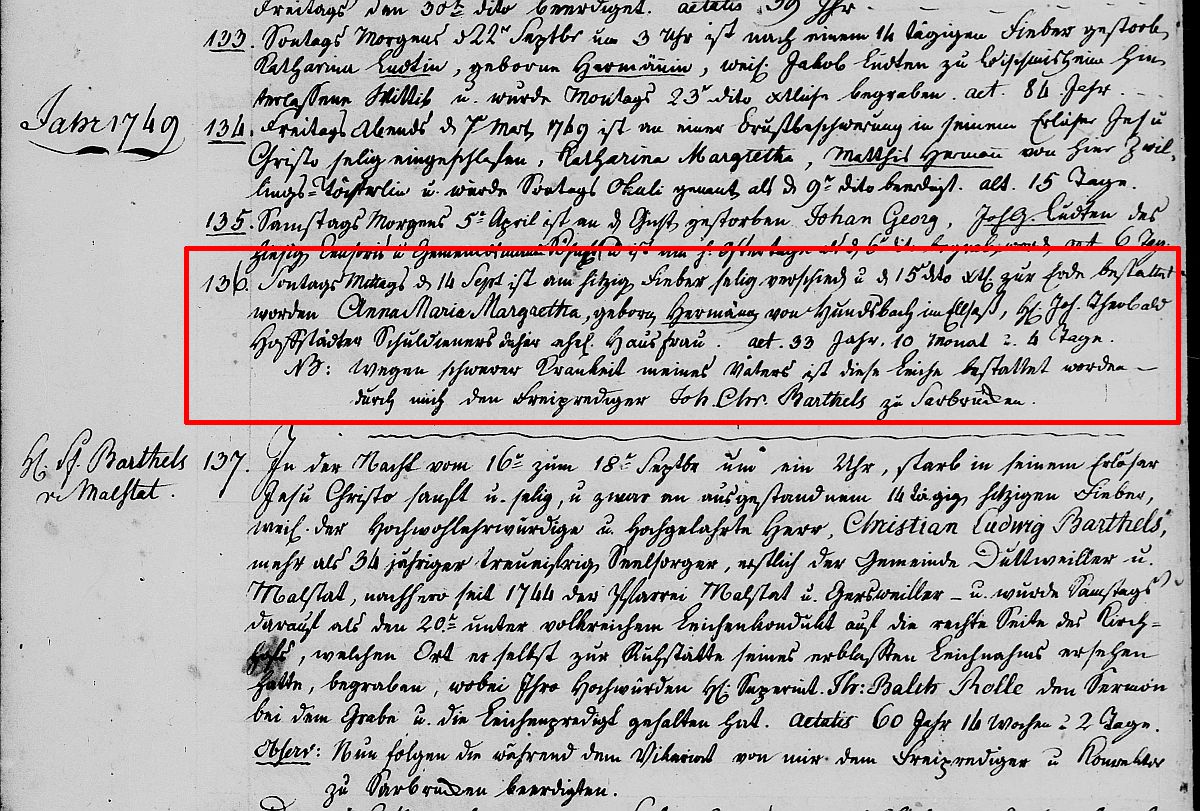 Freitags den 30t dito beerdiget. aetatis 59 Jhr.
133. Sontags Morgens d 22t Septbr um 3 Uhr ist nach einem 14 tägigen Fieber gestorb,
Katharina Ludtin, geborne Hermännin, weil. Jakob Ludten zu Bischmisheim hin-
terlassene Wittib u. wurde Montags 23t dito begraben. aet. 84 Jahr.
Jahr 1749
134. Freitags Abends d 7t Mart. 1749 ist an einer Brustbeschwerung in seinem Erlöser Jesu
Christo selig eingeschlafen, Katharina Margretha, Matthis Hermann von hier Zwil-
lings-Töchterlin u. wurde Sontags Okuli genant als d 9t dito beerdigt. alt. 15 Tage.
135. Samstags Morgens 5t April ist an d Gicht gestorben Johan Georg, Joh G. Ludten des
hiesig Censoris u Gemeinsmann 6 Tag.
136. Sontags Mittags d 14 Sept ist am hitzig Fieber selig verschied u d 15 dito zur Erde bestattet
worden Anna Maria Margretha, geborn Hermänn von Hundsbach im Elsaß, H. Joh. Theobald
Hoffstädter Schuldieners daher ehel. Hausfrau. aet. 33 Jahr. 10 Monat u. 4 Tage.
NB: wegen schwerer Krankeit meines Vaters ist diese Leiche bestattet worden –
durch mich den Freiprediger Joh. Chr. Barthels zu Sarbrücken.
H. Pf. Barthels
zu Malstat.
137. In der Nacht vom 16t zum 18t Septbr um ein Uhr, starb in seinem Erlöser
Jesu Christo sanft u. selig, u zwar an ausgestandnem 14 tägig, hitzigen Fieber,
weil. der Hochwohlehrwürdige u. Hochgelahrte Herr, Christian Ludwig Barthels,
mehr als 34 jähriger treueifrig Seelsorger, erstlich der Gemeinde Duttweiller u.
Malstat, nachhero seit 1744 der Pfarrei Malstat u. Gersweiller – u. wurde Samstags
darauf als den 20t unter volkreichem Leichenkondukt auf die rechte Seite des Kirch-
hofs, welchen Ort er selbst zur Ruhstätte seines erblaßten Leichnahms ersehen
hatte, begraben, wobei Ihro Hochwürden H. Superint. Th: Balth Rolle den Sermon
bei dem Grabe u. die Leichenpredigt gehalten hat. Aetatis 60 Jahr 14 Wochen u 2 Tage.
Observ: Nun folgen die während dem Vikariat von mir dem Freiprediger u Konrektor
zu Sarbrücken beerdigten.